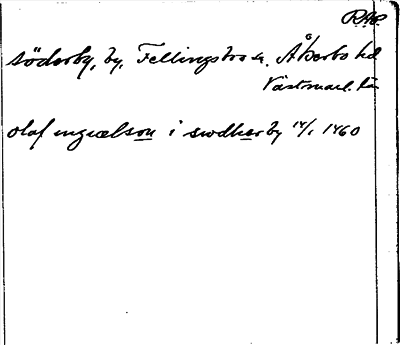 RAP.
söderby, by, Fellingsbro sn. Åkerbo hd
Västmanl. län
olaf ingiælson i swdherby 14/1 1460